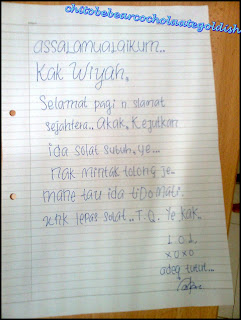 chitobebearcocholaategoldish
assalamualaikum..
Kak Wiyah.
Selamat pagi n slamat
sejahtera.. Akak, Kejutkan
ida solat subuh. ye...
nak mintak tolong je.
mane tau ida tido mati.
xtik lepat solat... T.Q. ye kak.
1 0 1
x o x o
adeq tutut...